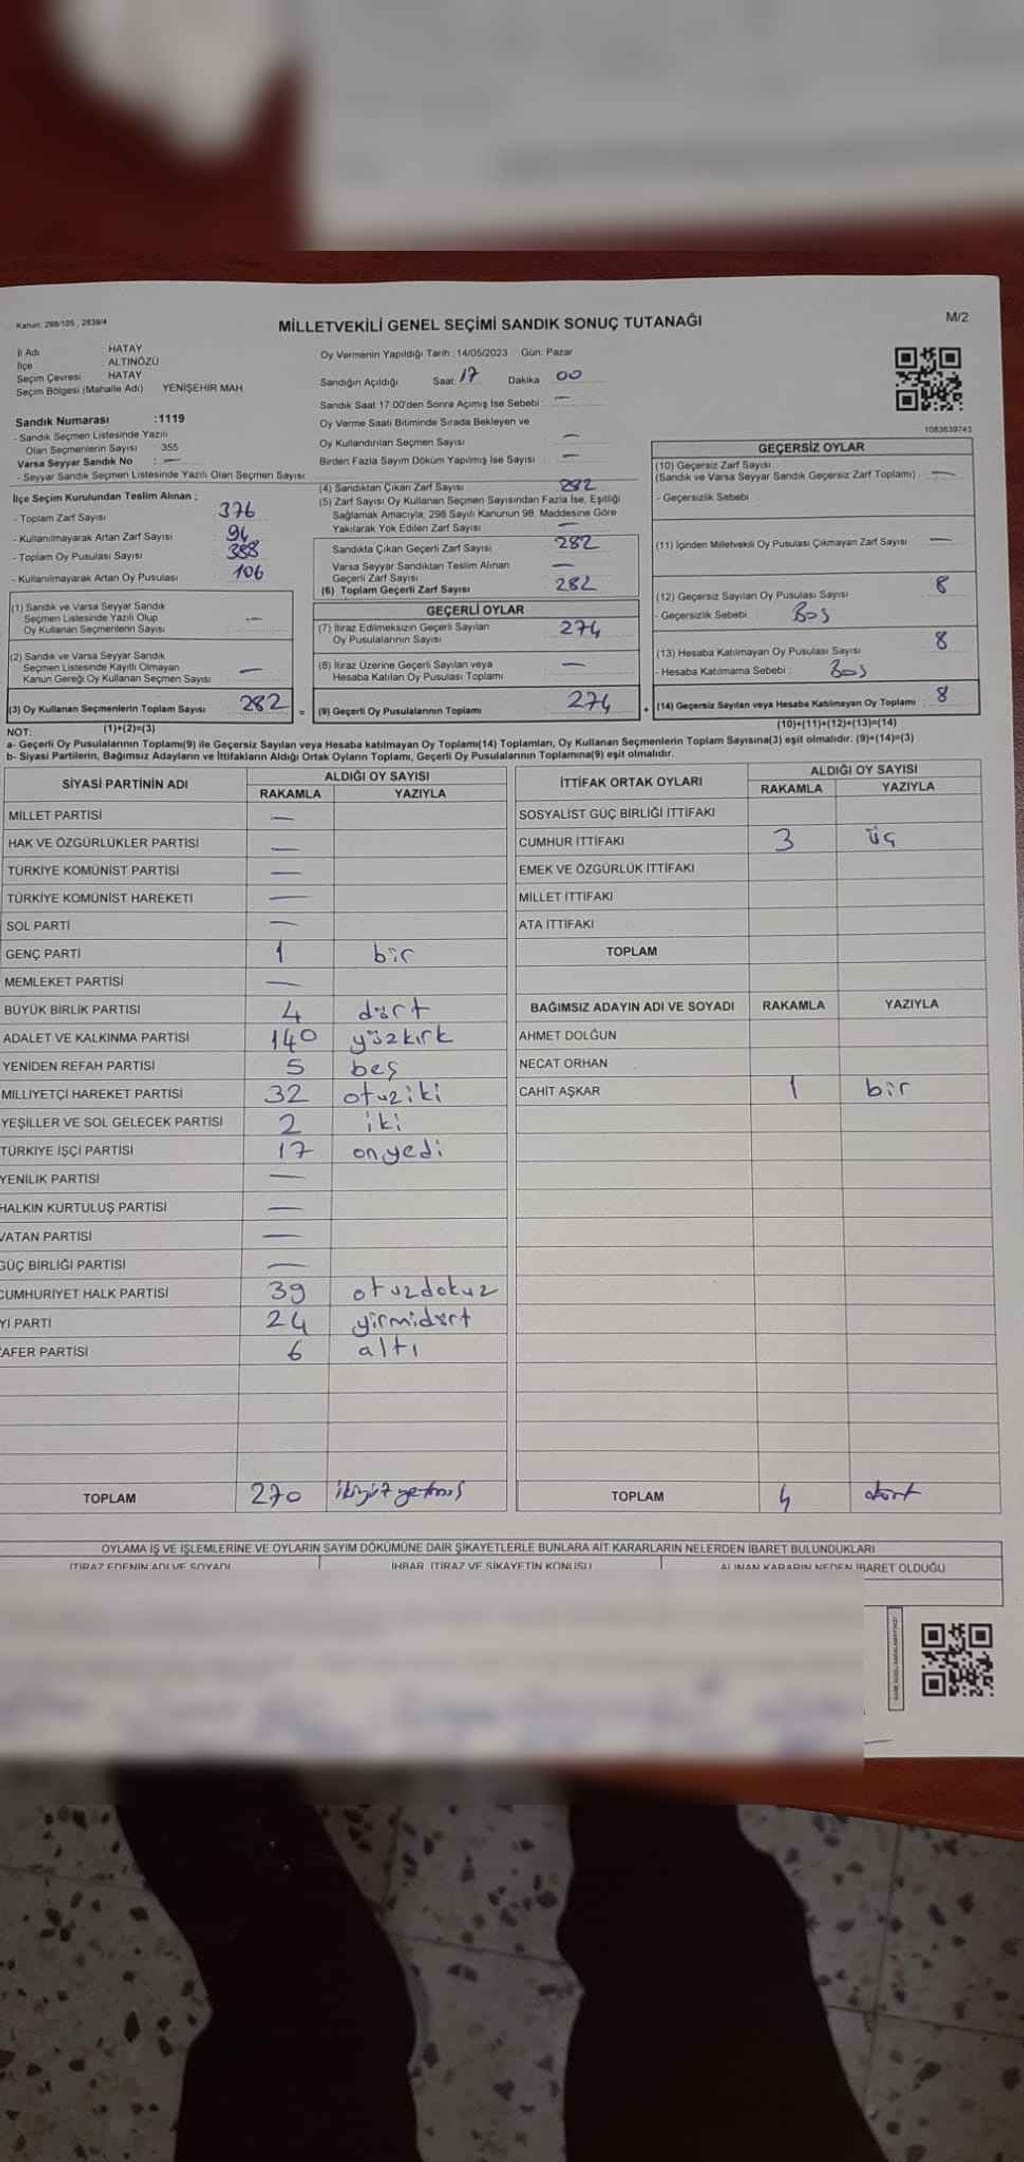 Kanun: 298/105 , 2839/4
MİLLETVEKİLİ GENEL SEÇİMİ SANDIK SONUÇ TUTANAĞI
M/2
İl Adı : HATAY
İlçe : ALTINÖZÜ
Seçim Çevresi : HATAY
Seçim Bölgesi (Mahalle Adı) YENİŞEHİR MAH.
Sandık Numarası :1119
- Sandık Seçmen Listesinde Yazılı
Olan Seçmenlerin Sayısı 355
Varsa Seyyar Sandık No : —
- Seyyar Sandık Seçmen Listesinde Yazılı Olan Seçmen Sayısı
Oy Vermenin Yapıldığı Tarih : 14/05/2023 Gün: Pazar
Sandığın Açıldığı Saat: 17 Dakika 00
Sandık Saat 17.00'den Sonra Açımış İse Sebebi : —
Oy Verme Saati Bitiminde Sırada Bekleyen ve
Oy Kullandırılan Seçmen Sayısı —
Birden Fazla Sayım Döküm Yapılmış İse Sayısı —
1083639743
İlçe Seçim Kurulundan Teslim Alınan ;
- Toplam Zarf Sayısı 376
- Kullanılmayarak Artan Zarf Sayısı 94
- Toplam Oy Pusulası Sayısı 388
- Kullanılmayarak Artan Oy Pusulası 106
(1) Sandık ve Varsa Seyyar Sandık
Seçmen Listesinde Yazılı Olup
Oy Kullanan Seçmenlerin Sayısı —
(2) Sandık ve Varsa Seyyar Sandık
Seçmen Listesinde Kayıtlı Olmayan
Kanun Gereği Oy Kullanan Seçmen Sayısı —
(3) Oy Kullanan Seçmenlerin Toplam Sayısı 282 =
(1)+(2)=(3)
(4) Sandıktan Çıkan Zarf Sayısı 282
(5) Zarf Sayısı Oy Kullanan Seçmen Sayısından Fazla İse, Eşitliği
Sağlamak Amacıyla, 298 Sayılı Kanunun 98. Maddesine Göre
Yakılarak Yok Edilen Zarf Sayısı —
Sandıkta Çıkan Geçerli Zarf Sayısı 282
Varsa Seyyar Sandıktan Teslim Alınan
Geçerli Zarf Sayısı —
(6) Toplam Geçerli Zarf Sayısı 282
GEÇERLİ OYLAR
(7) İtiraz Edilmeksizin Geçerli Sayılan
Oy Pusulalarının Sayısı 274
(8) İtiraz Üzerine Geçerli Sayılan veya
Hesaba Katılan Oy Pusulası Toplamı —
(9) Geçerli Oy Pusulalarının Toplamı 274 +
GEÇERSİZ OYLAR
(10) Geçersiz Zarf Sayısı
(Sandık ve Varsa Seyyar Sandık Geçersiz Zarf Toplamı) —
- Geçersizlik Sebebi
(11) İçinden Milletvekili Oy Pusulası Çıkmayan Zarf Sayısı —
(12) Geçersiz Sayılan Oy Pusulası Sayısı 8
- Geçersizlik Sebebi Boş
(13) Hesaba Katılmayan Oy Pusulası Sayısı 8
- Hesaba Katılmama Sebebi : Boş
(14) Geçersiz Sayılan veya Hesaba Katılmayan Oy Toplamı 8
(10)+(11)+(12)+(13)=(14)
NOT:
a- Geçerli Oy Pusulalarının Toplamı(9) ile Geçersiz Sayılan veya Hesaba katılmayan Oy Toplamı(14) Toplamları, Oy Kullanan Seçmenlerin Toplam Sayısına(3) eşit olmalıdır. (9)+(14)=(3)
b- Siyasi Partilerin, Bağımsız Adayların ve İttifakların Aldığı Ortak Oyların Toplamı, Geçerli Oy Pusulalarının Toplamına(9) eşit olmalıdır.
SİYASİ PARTİNİN ADI ALDIĞI OY SAYISI
RAKAMLA YAZIYLA
MİLLET PARTİSİ —
HAK VE ÖZGÜRLÜKLER PARTİSİ —
TÜRKİYE KOMÜNİST PARTİSİ —
TÜRKİYE KOMÜNİST HAREKETİ —
SOL PARTİ —
GENÇ PARTİ 1 bir
MEMLEKET PARTİSİ —
BÜYÜK BİRLİK PARTİSİ 4 dört
ADALET VE KALKINMA PARTİSİ 140 yüzkırk
YENİDEN REFAH PARTİSİ 5 beş
MİLLİYETÇİ HAREKET PARTİSİ 32 otuziki
YEŞİLLER VE SOL GELECEK PARTİSİ 2 iki
TÜRKİYE İŞÇİ PARTİSİ 17 onyedi
YENİLİK PARTİSİ —
HALKIN KURTULUŞ PARTİSİ —
VATAN PARTİSİ —
GÜÇ BİRLİĞİ PARTİSİ —
CUMHURİYET HALK PARTİSİ 39 otuzdokuz
Yİ PARTİ 24 yirmidört
AFER PARTİSİ 6 altı
TOPLAM 270 ikiyüzyetmiş
İTTİFAK ORTAK OYLARI ALDIĞI OY SAYISI
RAKAMLA YAZIYLA
SOSYALİST GÜÇ BİRLİĞİ İTTİFAKI
CUMHUR İTTİFAKI 3 üç
EMEK VE ÖZGÜRLÜK İTTİFAKI
MİLLET İTTİFAKI
ATA İTTİFAKI
TOPLAM
BAĞIMSIZ ADAYIN ADI VE SOYADI RAKAMLA YAZIYLA
AHMET DOLĞUN
NECAT ORHAN
CAHİT AŞKAR 1 bir
TOPLAM 4 dört
OYLAMA İŞ VE İŞLEMLERİNE VE OYLARIN SAYIM DÖKÜMÜNE DAİR ŞİKAYETLERLE BUNLARA AİT KARARLARIN NELERDEN İBARET BULUNDUKLARI
İTİRAZ EDENİN ADI VE SOYADI İHBAR, İTİRAZ VE ŞİKAYETİN KONUSU ALINAN KARARIN NEDEN İBARET OLDUĞU